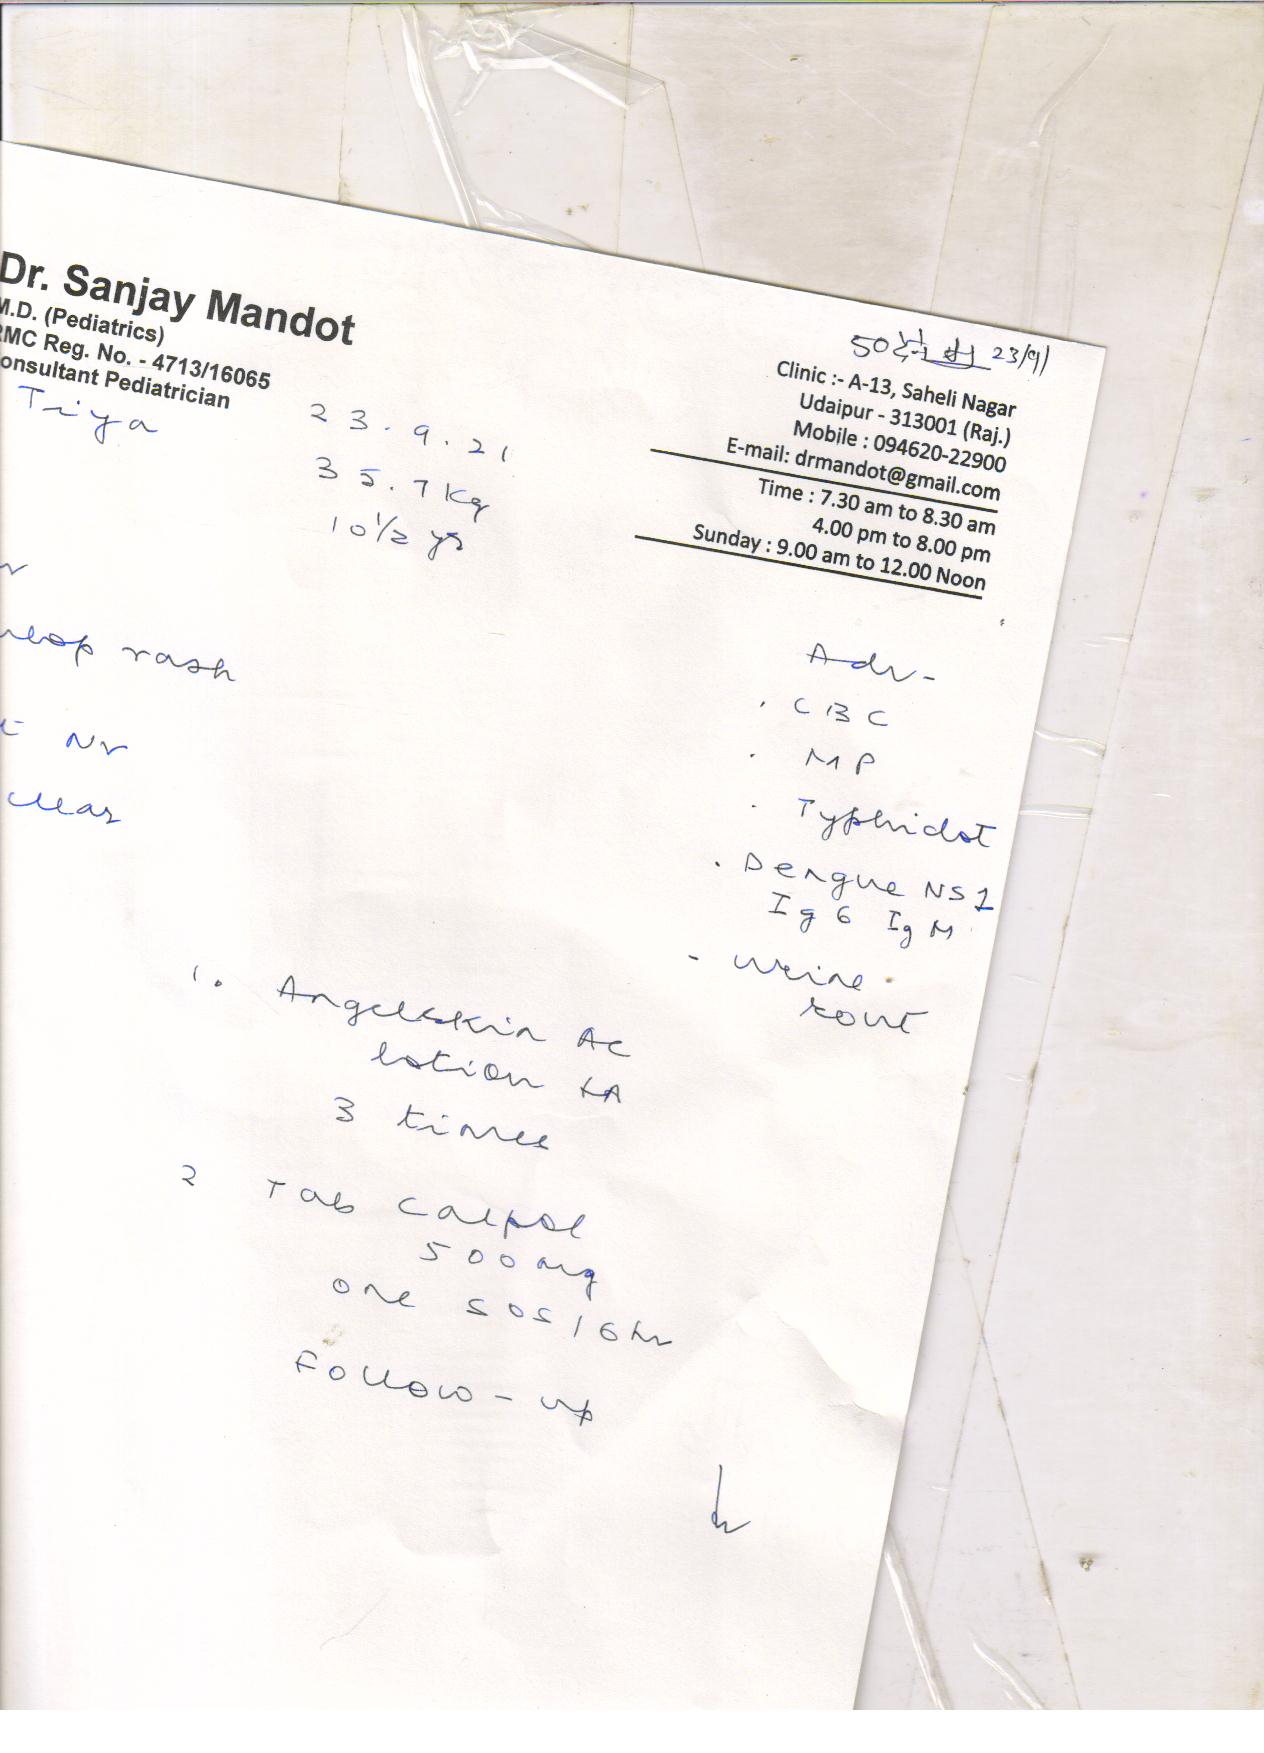 Dr. Sanjay Mandot
M.D. (Pediatrics)
RMC Reg. No. - 4713/16065
Consultant Pediatrician
23/9/
Clinic :- A-13, Saheli Nagar
Udaipur - 313001 (Raj.)
Mobile : 094620-22900
E-mail: drmandot@gmail.com
Time : 7.30 am to 8.30 am
4.00 pm to 8.00 pm
Sunday : 9.00 am to 12.00 Noon
Triya
23.9.21
35.7 kg
10 1/2 yr
rash
clear
Adv -
. CBC
. MP
. Typhidot
. Dengue NS1
IgG IgM
- urine
rout
1. Angelskin AC
lotion LA
3 times
2 Tab Calpol
500 mg
one SOS / 6 hr
Follow-up